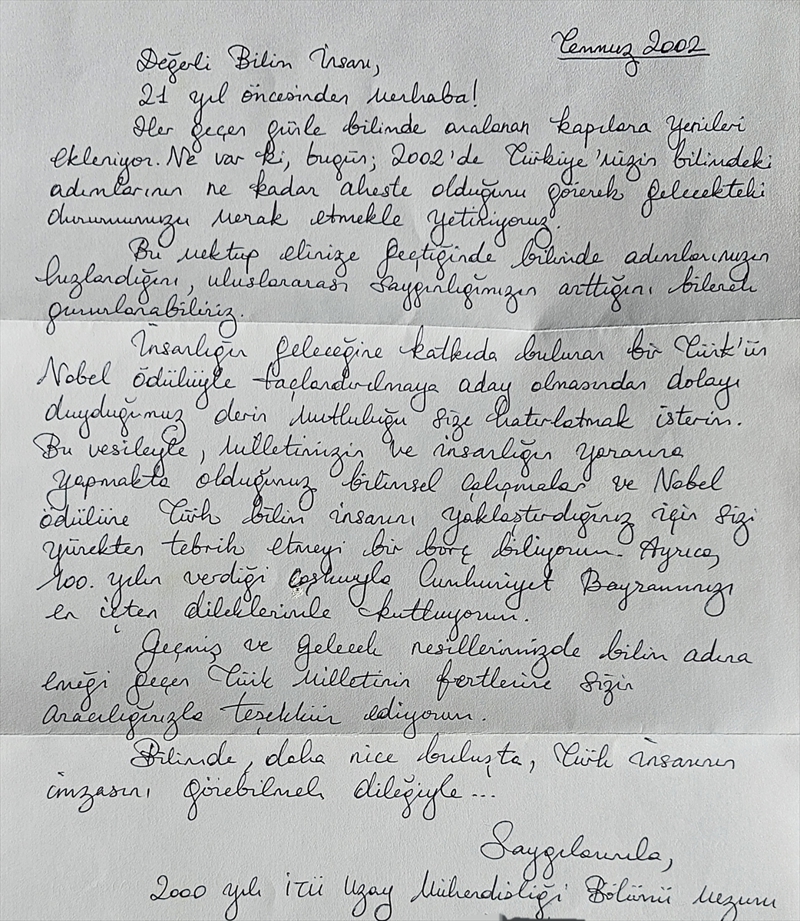 Temmuz 2002
Değerli Bilim İnsanı,
21 yıl öncesinden merhaba!
Her geçen günle bilimde aralanan kapılara yenileri
ekleniyor. Ne var ki, bugün; 2002'de Türkiye'mizin bilimdeki
adımlarının ne kadar aheste olduğunu görerek gelecekteki
durumumuzu merak etmekle yetiniyoruz.
Bu mektup elinize geçtiğinde bilimde adımlarımızın
hızlandığını, uluslararası saygınlığımızın arttığını bilerek
gururlanabiliriz.
İnsanlığın geleceğine katkıda bulunan bir Türk'ün
Nobel ödülüyle taçlandırılmaya aday olmasından dolayı
duyduğumuz derin mutluluğu size hatırlatmak isterim.
Bu vesileyle, milletimizin ve insanlığın yararına
yapmakta olduğunuz bilimsel çalışmalar ve Nobel
ödülüne Türk bilim insanını yaklaştırdığınız için sizi
yürekten tebrik etmeyi bir borç biliyorum. Ayrıca,
100. yılın verdiği coşkuyla Cumhuriyet Bayramınızı
en içten dileklerimle kutluyorum.
Geçmiş ve gelecek nesillerimizde bilim adına
emeği geçen Türk Milletinin fertlerine sizin
aracılığınızla teşekkür ediyorum.
Bilimde, daha nice buluşta, Türk insanının
imzasını görebilmek dileğiyle...
Saygılarımla,
2000 yılı İTÜ Uzay Mühendisliği Bölümü mezunu